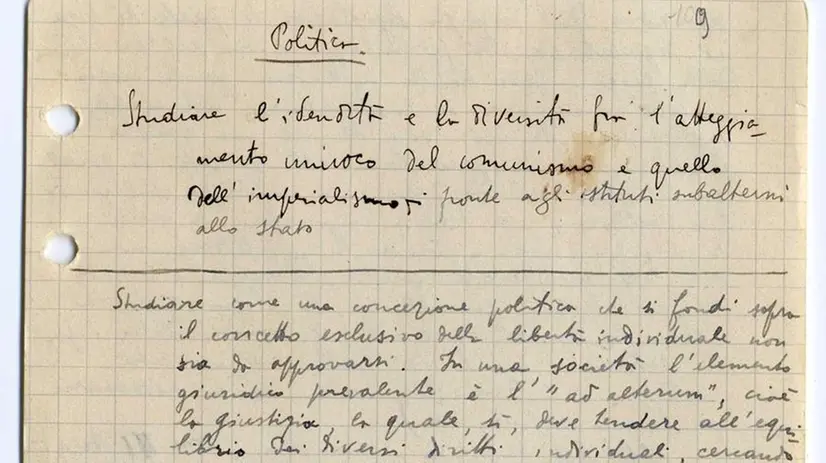 109
Politica.
Studiare l'identità e la diversità fra l'atteggia-
mento univoco del comunismo e quello
dell'imperialismo, di fronte agli istituti subalterni
allo stato
Studiare come una concezione politica che si fondi sopra
il concetto esclusivo della libertà individuale non
sia da approvarsi. In una società l'elemento
giuridico prevalente è l'"ad alterum", cioè
la giustizia, la quale, sì, deve tendere all'equi-
librio dei diversi diritti individuali, cercando